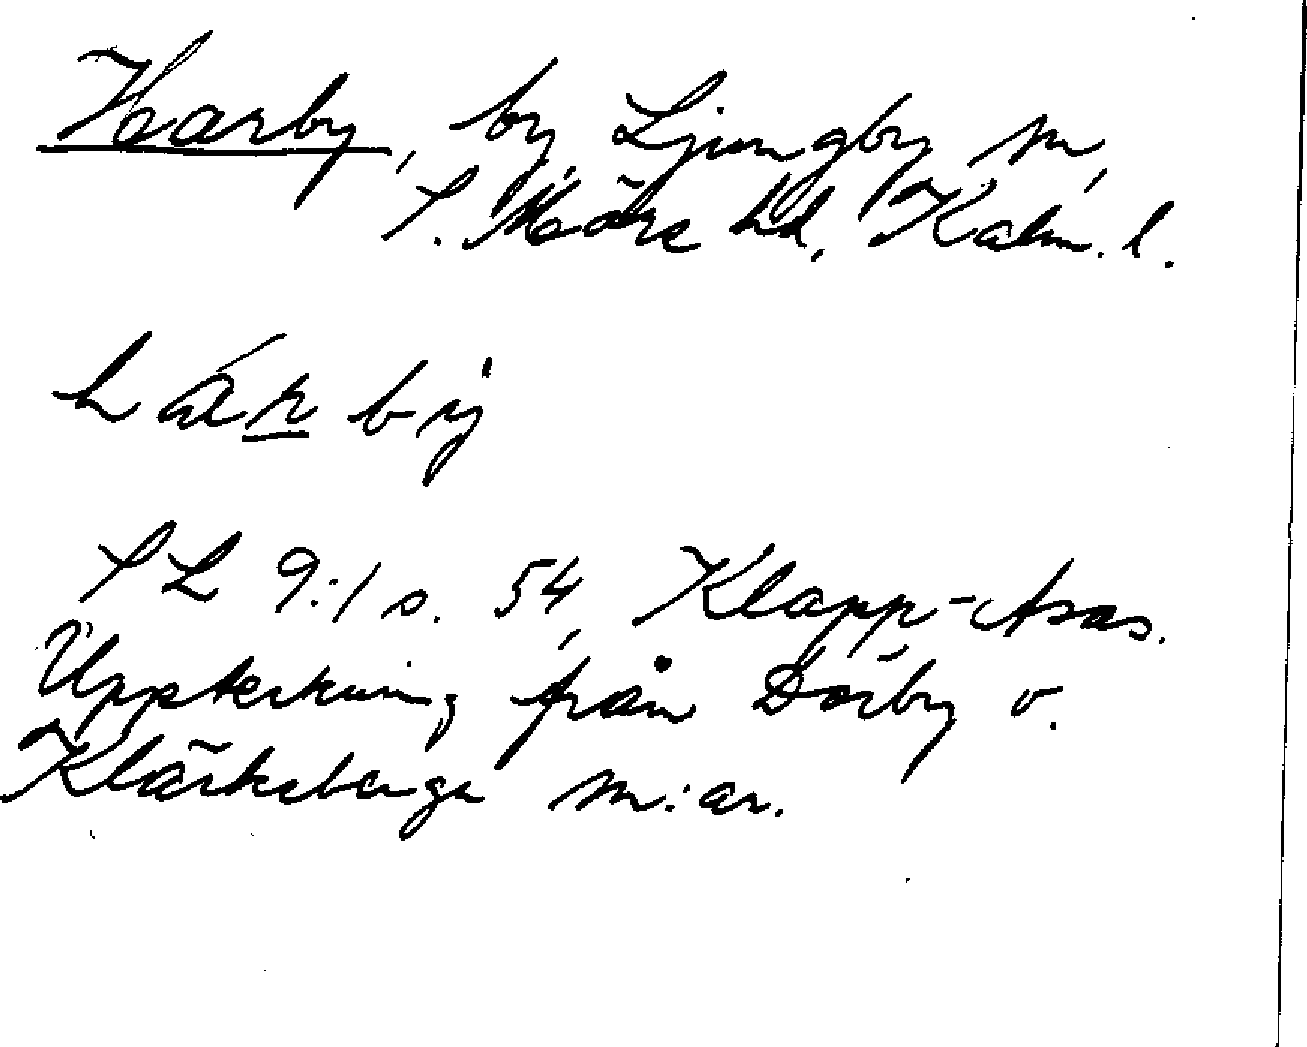 Harby, by, Ljungby sn,
S. Möre hd. Kalm. l.
hárby
SL 9:1 s. 54, Klapp-Asas.
Uppteckning från Dörby o.
Kläckeberga sn:ar.